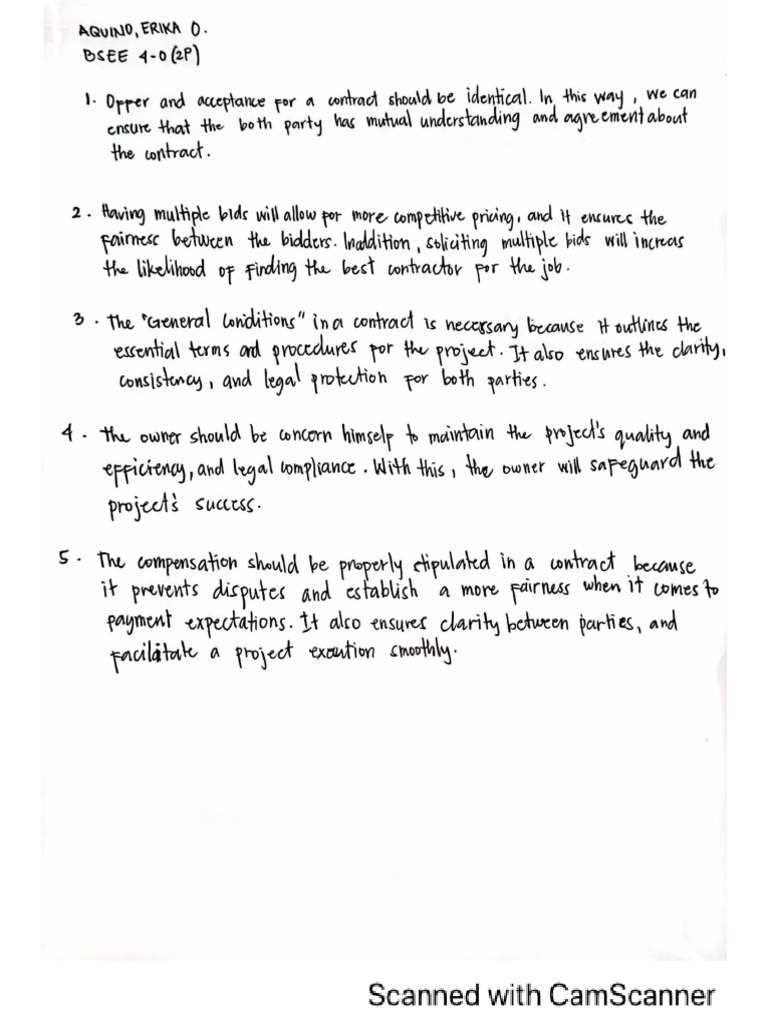 AQUINO, ERIKA O.
BSEE 4-O (2P)
1. Opper and acceptance for a contract should be identical. In this way, we can
ensure that the both party has mutual understanding and agreement about
the contract.
2. Having multiple bids will allow for more competitive pricing, and it ensures the
fairness between the bidders. Inaddition, soliciting multiple bids will increas
the likelihood of finding the best contractor for the job.
3. The "General Conditions" in a contract is necessary because it outlines the
essential terms and procedures for the project. It also ensures the clarity,
consistency, and legal protection for both parties.
4. The owner should be concern himself to maintain the project's quality and
efficiency, and legal compliance. With this, the owner will safeguard the
project's success.
5. The compensation should be properly stipulated in a contract because
it prevents disputes and establish a more fairness when it comes to
payment expectations. It also ensures clarity between parties, and
facilitate a project execution smoothly.
Scanned with CamScanner